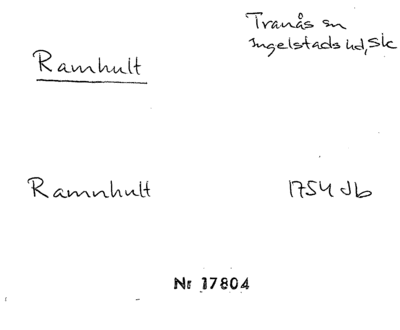 Ramhult
Tranås sn
Ingelstads hd, Sk
Ramnhult
1754 Jb
Nr 17804